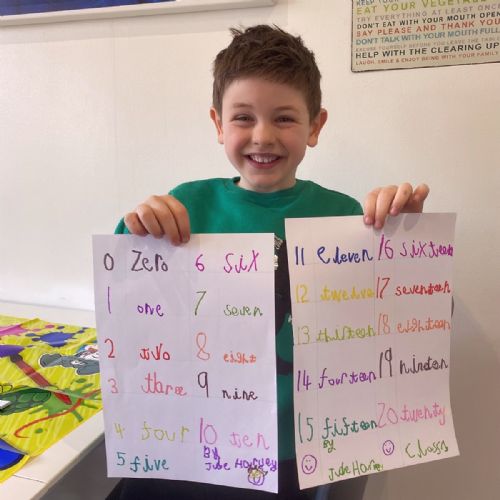 EAT YOUR VEGETABLES
TRY EVERYTHING AT LEAST ONCE
DON'T EAT WITH YOUR MOUTH OPEN
SAY PLEASE AND THANK YOU
DON'T TALK WITH YOUR MOUTH FULL
EXCUSE YOURSELF BEFORE YOU LEAVE THE TABLE
HELP WITH THE CLEARING UP
LAUGH, SMILE & ENJOY BEING WITH YOUR FAMILY
0 Zero 6 six
1 one 7 seven
2 two 8 eight
3 three 9 nine
4 four 10 ten
5 five By
Jude
11 eleven 16 sixteen
12 twelve 17 seventeen
13 thirteen 18 eighteen
14 fourteen 19 ninteen
15 fifteen 20 twenty
By
Jude